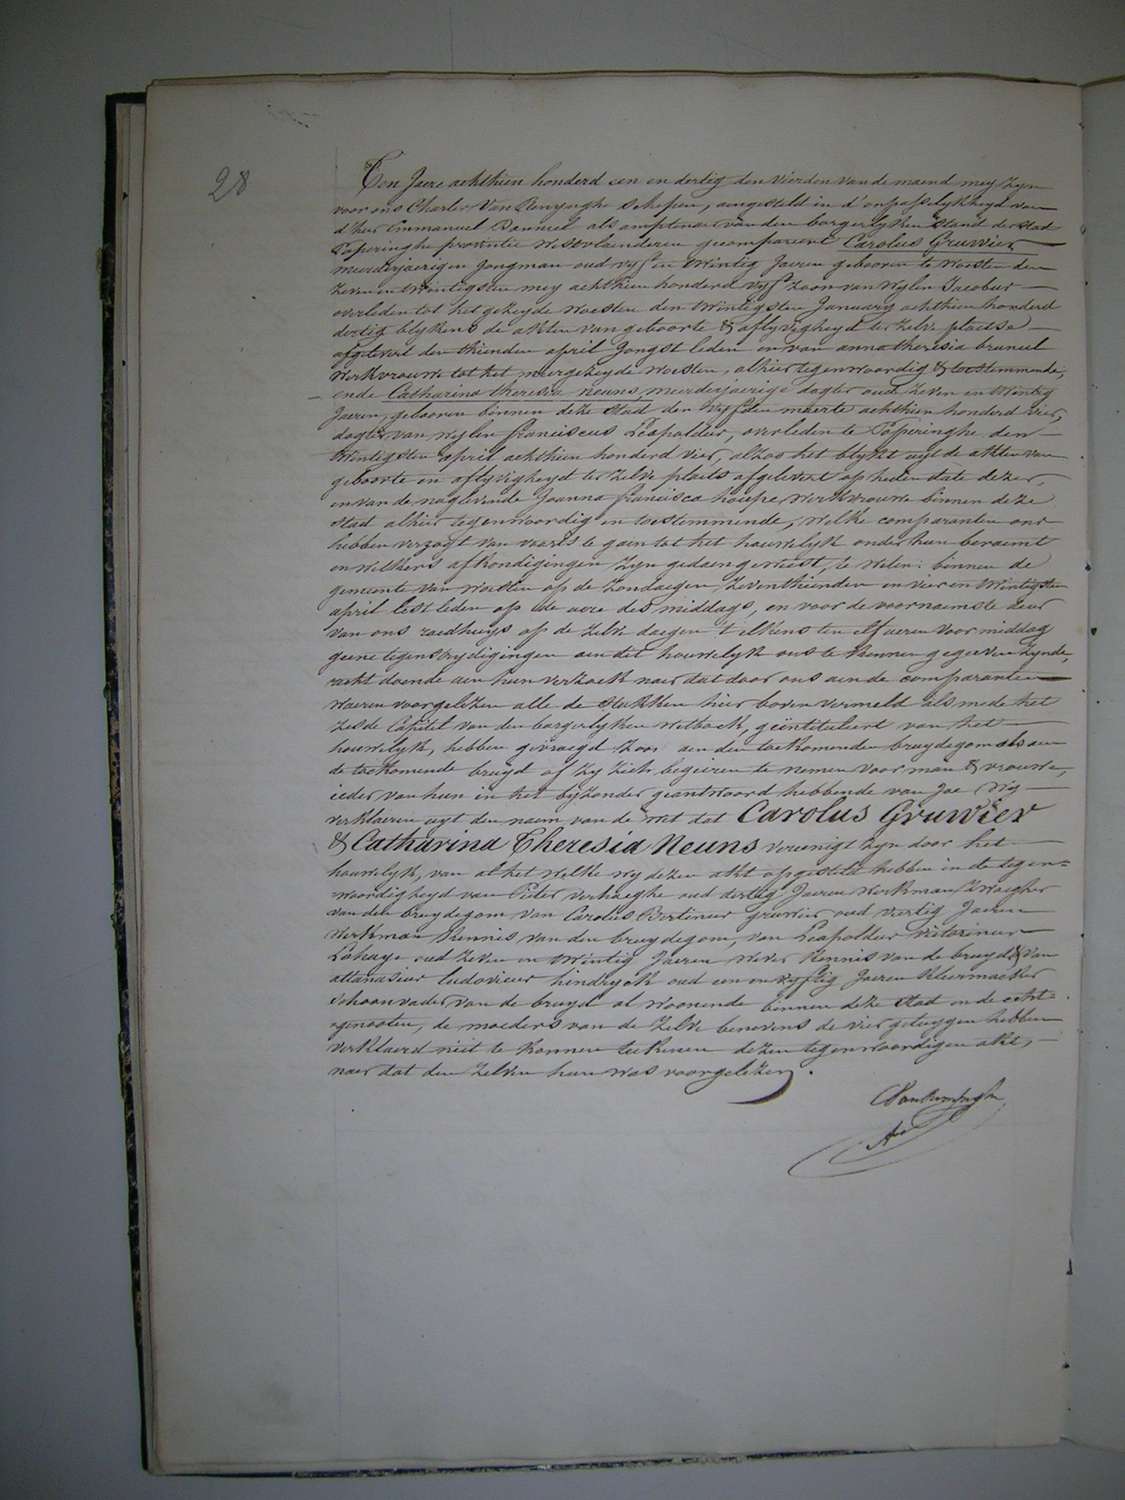 28
Ten Jaere achthien honderd een en dertig den vierden van de maend mey zyn
voor ons Charles Van Renynghe schepen, aengesteld in d'onpasselykheyd van
d'heer Emmanuel Banneel als amptenaer van den borgerlyken stand der stad
Poperinghe provintie Westvlaenderen gecompareert Carolus Gruwier
meerderjaerigen jongman oud vyf en twintig Jaeren gebooren te Woesten den
zeven en twintigsten mey achthien honderd vyf zoon van wylen Jacobus
overleden tot het gezeyde Woesten den twintigsten January achthien honderd
dertig blykens de akten van geboorte & aflyvigheyd ter zelve plaetse
afgelevert den thienden april Jongst leden en van anna theresia bruneel
werkvrouwe tot het meergezeyde Woesten, alhier tegenwoordig & toestemmende,
ende Catharina theresia neuns, meerderjaerige dogter oud zeven en twintig
Jaeren, gebooren binnen deze stad den vyfden maerte achthien honderd vier,
dogter van wylen franciscus Leopoldus, overleden te Poperinghe den
twintigsten april achthien honderd vier, alzoo het blykt uyt de akten van
geboorte en aflyvigheyd ter zelve plaets afgelevert op heden date dezer,
en van de naglevende Joanna francisca houpe werkvrouwe binnen deze
stad alhier tegenwoordig en toestemmende, welke comparanten ons
hebben verzogt van voorts te gaen tot het houwelyk onder hun beraemt
en welkers afkondigingen zyn gedaen geweest, te weten: binnen de
gemeente van Woesten op de zondaegen zeventhienden en vier en twintigsten
april lest leden op de uere des middags, en voor de voornaemste deur
van ons raedhuys op de zelve daegen t'elkens ten elf ueren voor middag
geene tegenstrydigingen aen dit houwelyk ons te kennen gegeeven zynde,
recht doende aen hun verzoek naer dat door ons aen de comparanten
waeren voorgelezen alle de stukken hier boven vermeld als mede het
zesde Capitel van den borgerlyken wetboek, geïntituleert van het
houwelyk, hebben gevraegd zoo aen den toekomenden bruydegom als aen
de toekomende bruyd of zy zich begeeren te nemen voor man & vrouwe,
ieder van hun in het byzonder geantwoord hebbende van Jae wy
verklaeren uyt den naem van de wet dat Carolus Gruwier
& Catharina Theresia Neuns vereenigt zyn door het
houwelyk, van al het welke wy dezen akt opgesteld hebben in de tegen=
=woordigheyd van Pieter verhaeghe oud dertig Jaeren werkman zwaegher
van den bruydegom van Carolus Bertinus gruwier oud viertig Jaeren
werkman kennis van den bruydegom, van Leopoldus victorinus
Lahaye oud zeven en twintig Jaeren wever kennis van de bruyd & van
attanasius ludovicus hindryck oud een en vyftig Jaeren kleermaeker
schoonvader van de bruyd al woonende binnen deze stad en de echt=
=genooten, de moeders van de zelve benevens de vier getuygen hebben
verklaerd niet te konnen teekenen dezen tegenwoordigen akt,
naer dat den zelven hun was voorgelezen.
CVanRenynghe